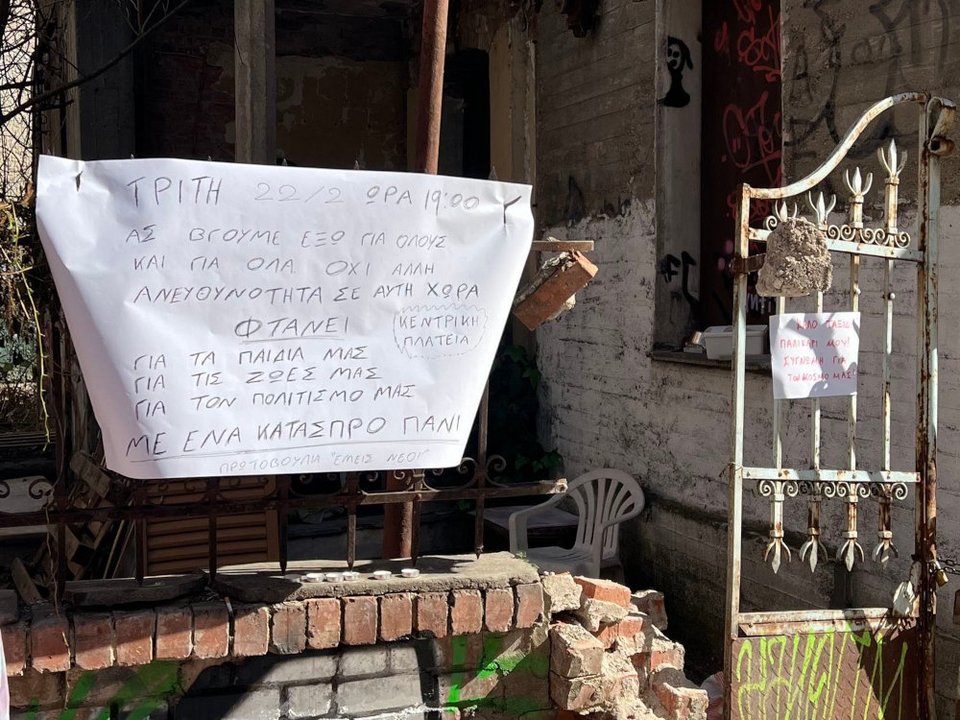 ΤΡΙΤΗ 22/2 ΩΡΑ 19:00
ΑΣ ΒΓΟΥΜΕ ΕΞΩ ΓΙΑ ΟΛΟΥΣ
ΚΑΙ ΓΙΑ ΟΛΑ ΟΧΙ ΑΛΛΗ
ΑΝΕΥΘΥΝΟΤΗΤΑ ΣΕ ΑΥΤΗ ΧΩΡΑ
ΦΤΑΝΕΙ
ΚΕΝΤΡΙΚΗ
ΠΛΑΤΕΙΑ
ΓΙΑ ΤΑ ΠΑΙΔΙΑ ΜΑΣ
ΓΙΑ ΤΙΣ ΖΩΕΣ ΜΑΣ
ΓΙΑ ΤΟΝ ΠΟΛΙΤΙΣΜΟ ΜΑΣ
ΜΕ ΕΝΑ ΚΑΤΑΣΠΡΟ ΠΑΝΙ
ΠΡΩΤΟΒΟΥΛΙΑ "ΕΜΕΙΣ ΝΕΟΙ"
ΚΑΛΟ ΤΑΞΙΔΙ
ΠΑΛΙΚΑΡΙ ΜΟΥ!
ΣΥΓΝΩΜΗ ΓΙΑ
ΤΟΝ ΚΟΣΜΟ ΜΑΣ!